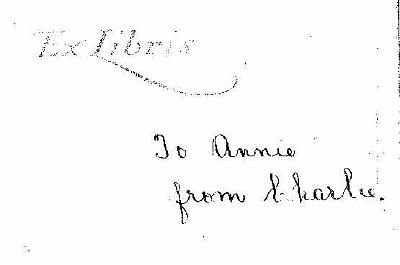 Ex Libris
To Annie
from Charlie.